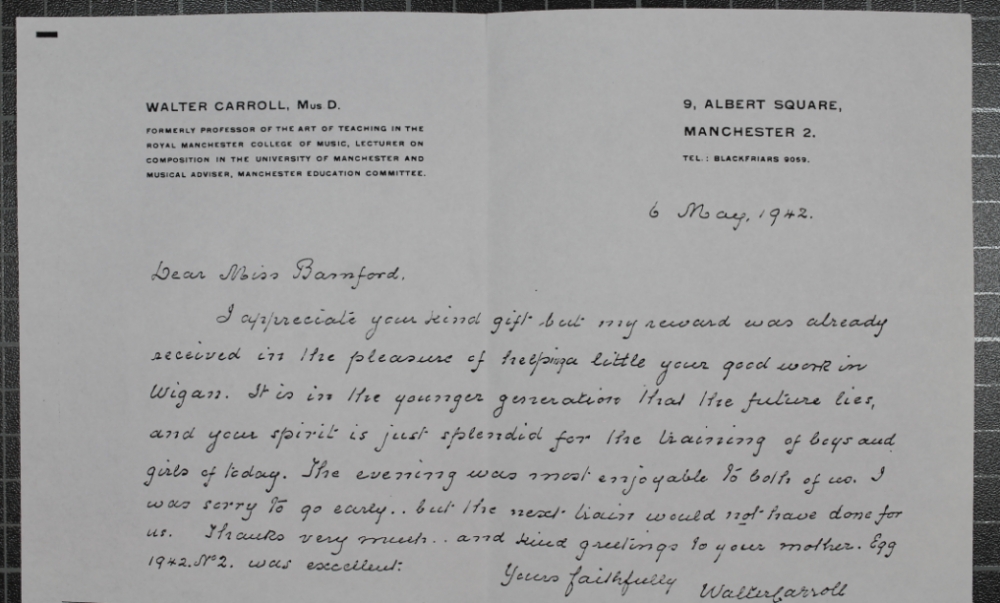 WALTER CARROLL, Mus D.
FORMERLY PROFESSOR OF THE ART OF TEACHING IN THE
ROYAL MANCHESTER COLLEGE OF MUSIC, LECTURER ON
COMPOSITION IN THE UNIVERSITY OF MANCHESTER AND
MUSICAL ADVISER, MANCHESTER EDUCATION COMMITTEE.
9, ALBERT SQUARE,
MANCHESTER 2.
TEL.: BLACKFRIARS 9059.
6 May, 1942.
Dear Miss Bamford,
I appreciate your kind gift but my reward was already
received in the pleasure of helping a little your good work in
Wigan. It is in the younger generation that the future lies,
and your spirit is just splendid for the training of boys and
girls of today. The evening was most enjoyable to both of us. I
was sorry to go early.. but the next train would not have done for
us. Thanks very much.. and kind greetings to your mother. Egg
1942. No 2. was excellent.
Yours faithfully
Walter Carroll